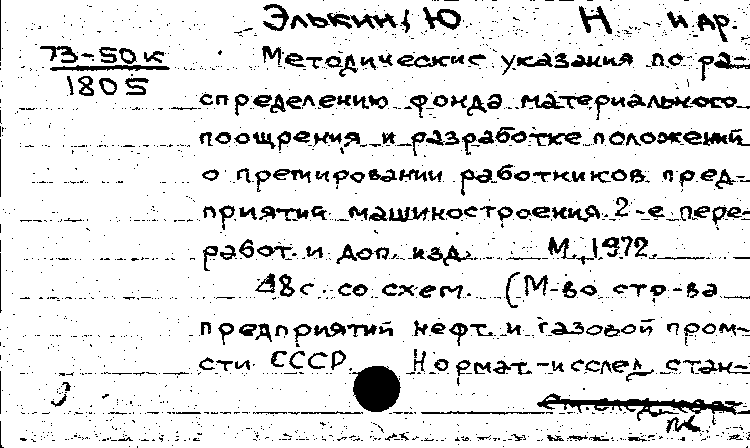 Элькин, Ю Н и др.
73-50к
1805
Методические указания по ра-
спределению фонда материального
поощрения и разработке положений
о премировании работников пред-
приятий машиностроения. 2-е пере-
работ. и доп. изд. М., 1972.
48с. со схем. (М-во стр-ва
предприятий нефт. и газовой пром-
сти СССР. Нормат.-исслед. стан-